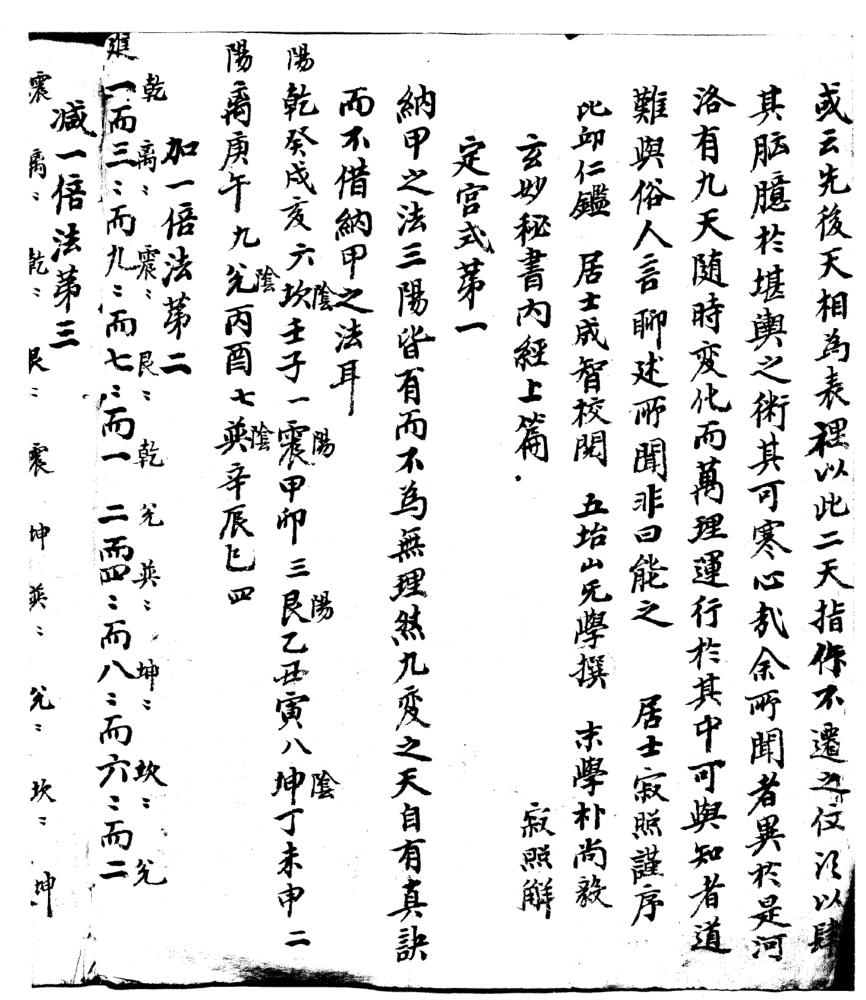 或云先後天相為表裡以此二天指作不遷之位次以肆
其胸臆於堪輿之術其可寒心哉余所聞者異於是河
洛有九天随時変化而萬理運行於其中可與知者道
難與俗人言聊述所聞非曰能之 居士寂照謹序
比卬仁鑑 居士成智校閱 五坮山旡學撰 末學朴尚毅
玄妙秘書內經上篇 寂照觧
定宮式苐一
納甲之法三陽皆有而不為無理然九変之天自有真訣
而不借納甲之法耳
陽乾癸戌亥六 陰坎壬子一 陽震甲卯三 陽艮乙丑寅八 陰坤丁未申二
陽离庚午九 陰兊丙酉七 陰巽辛辰巳四
加一倍法苐二
乾 离〻 震〻 艮〻 乾 兊 巽〻 坤〻 坎〻 兊
進一而三〻而九〻而七〻而一 二而四〻而八〻而六〻而二
减一倍法苐三
震 离〻 乾〻 艮〻 震 坤 巽〻 兊〻 坎〻 坤